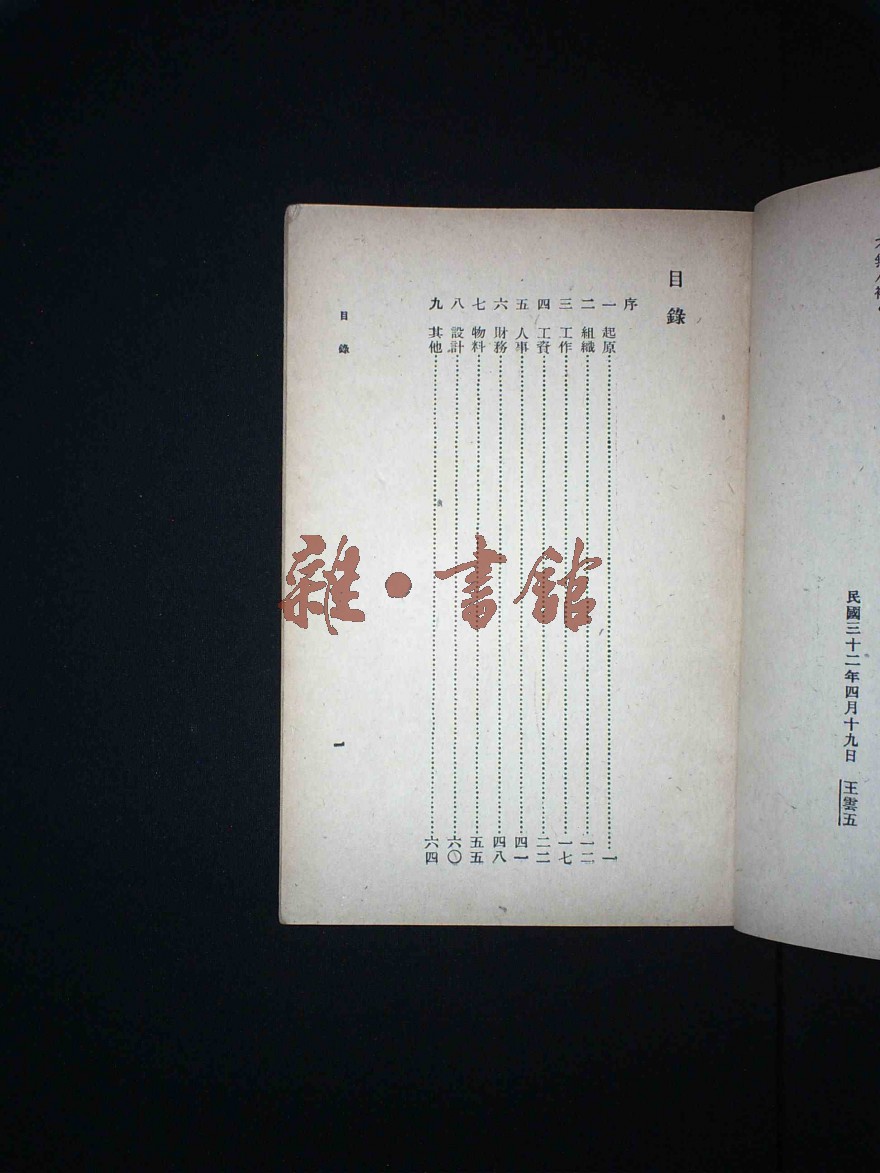 民國三十二年四月十九日 王雲五
目錄
序
一 起原……一
二 組織……一二
三 工作……一七
四 工資……二二
五 人事……四一
六 財務……四八
七 物料……五五
八 設計……六〇
九 其他……六四
目錄
一
雜·書館